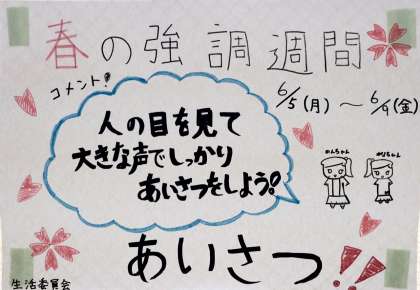 春の強調週間
コメント!
6/5(月)～6/9(金)
人の目を見て
大きな声でしっかり
あいさつをしよう!
のんちゃん
めりちゃん
あいさつ!!
生活委員会